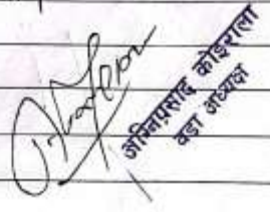 अग्निप्रसाद कोइराला
वडा अध्यक्ष